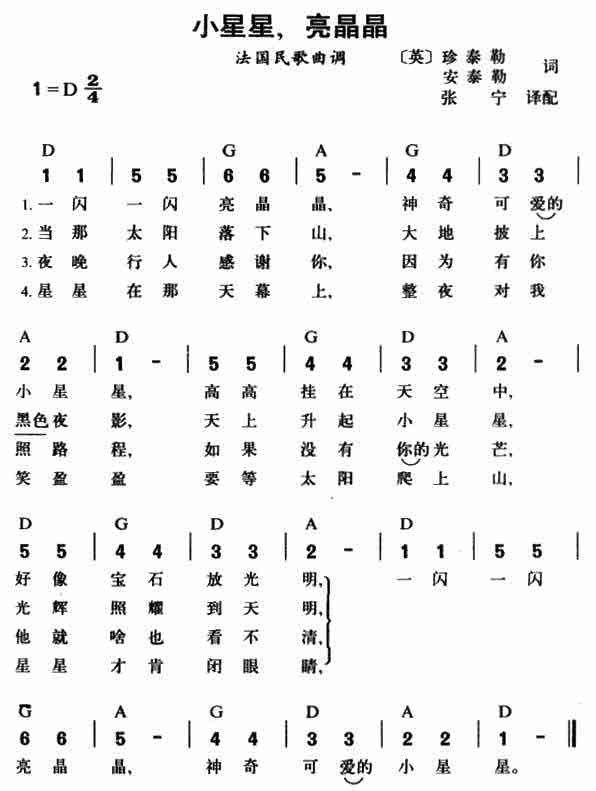 小星星，亮晶晶
法国民歌曲调
〔英〕珍泰勒
安泰勒 词
1=D 2/4
张 宁 译配
D G A G D
1 1 | 5 5 | 6 6 | 5 - | 4 4 | 3 3 |
1.一闪 一闪 亮晶 晶， 神奇 可爱的
2.当那 太阳 落下 山， 大地 披上
3.夜晚 行人 感谢 你， 因为 有你
4.星星 在那 天幕 上， 整夜 对我
A D G D A
2 2 | 1 - | 5 5 | 4 4 | 3 3 | 2 - |
小星 星， 高高 挂在 天空 中，
黑色夜 影， 天上 升起 小星 星，
照路 程， 如果 没有 你的光 芒，
笑盈 盈 要等 太阳 爬上 山，
D G D A D
5 5 | 4 4 | 3 3 | 2 - | 1 1 | 5 5 |
好像 宝石 放光 明， 一闪 一闪
光辉 照耀 到天 明，
他就 啥也 看不 清，
星星 才肯 闭眼 睛，
G A G D A D
6 6 | 5 - | 4 4 | 3 3 | 2 2 | 1 - ‖
亮晶 晶， 神奇 可爱的 小星 星。